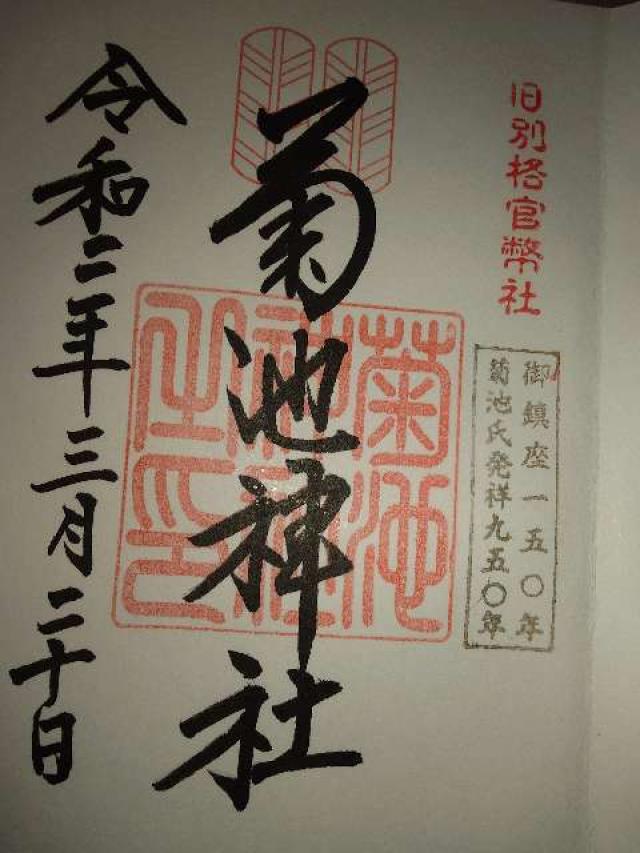 旧別格官幣社
御鎮座一五〇年
菊池氏発祥九五〇年
菊池神社
菊池神社之印
令和二年三月二十日